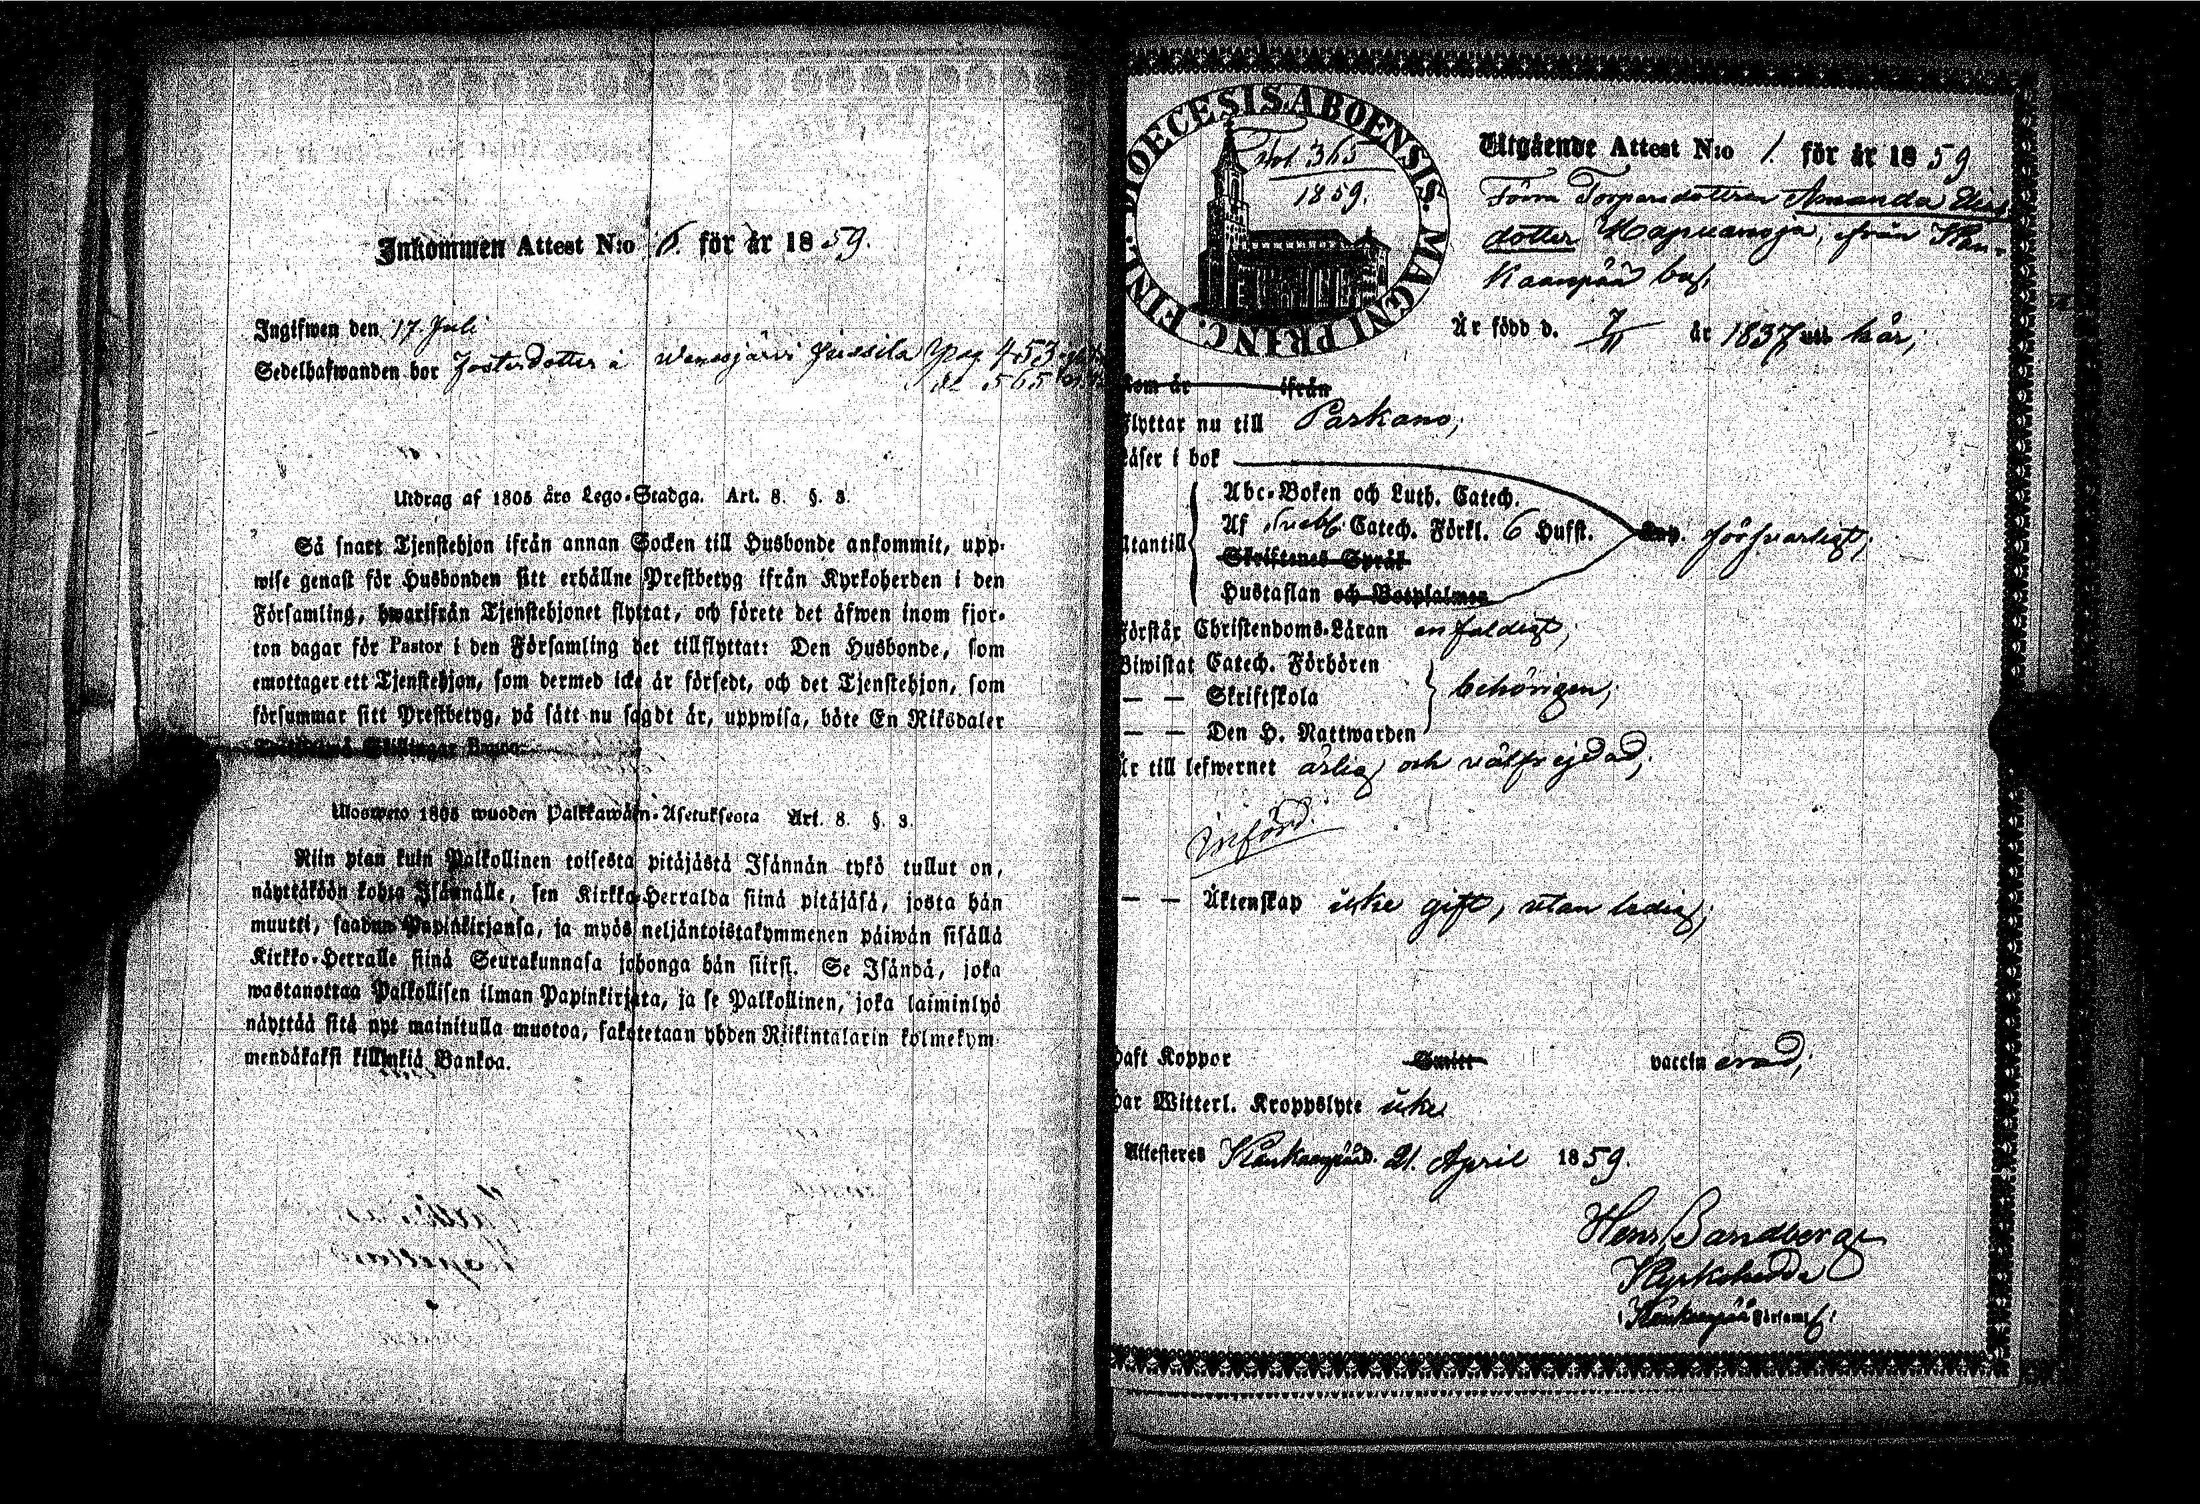 Inkommen Attest N:o 6. för år 1859.
Ingifwen den 17. Juli
Sedelhafwanden bor Fosterdotter å Wenesjärvi Jussila Pag 453
de 565
Utdrag af 1805 års Lego-Stadga. Art. 8. §. 3.
Så snart Tjenstehjon ifrån annan Socken till Husbonde ankommit, upp-
wise genast för Husbonden sitt erhållne Prestbetyg ifrån Kyrkoherden i den
Församling, hwarifrån Tjenstehjonet flyttat, och förete det äfwen inom fjor-
ton dagar för Pastor i den Församling det tillflyttat: Den Husbonde, som
emottager ett Tjenstehjon, som dermed icke är försedt, och det Tjenstehjon, som
försummar sitt Prestbetyg, på sätt nu sagdt är, uppwisa, böte En Riksdaler
Skillingar Banco.
Ulosweto 1805 wuoden Palkkawäen-Asetuksesta Art. 8. §. 3.
Niin pian kuin Palkollinen toisesta pitäjästä Isännän tykö tullut on,
näyttäköön kohta Isännälle, sen Kirkko-Herralda siinä pitäjäsä, josta hän
muutti, saadun Papinkirjansa, ja myös neljäntoistakymmenen päiwän sisällä
Kirkko-Herralle siinä Seurakunnasa johonga hän siirsi. Se Isändä, joka
wastanottaa Palkollisen ilman Papinkirjata, ja se Palkollinen, joka laiminlyö
näyttää sitä nyt mainitulla muotoa, sakotetaan yhden Riikintalarin kolmekym-
mendäkaksi killinkiä Bankoa.
DIOECESIS ABOENSIS. MAGNI PRINC. FINL.
Fol 365
1859.
Utgående Attest N:o 1. för år 1859
Förra Torparedottren Amanda Elis
dotter Hapuanoja, från Kan-
kaanpää by,
Är född d. 7/11 år 1837 här,
Kom år ifrån
flyttar nu till Parkano,
Läser i bok
Abc-Boken och Luth. Catech.
Af Svebil. Catech. Förkl. 6 Hufst. försvarligt,
Utantill
Skriftenes Språk
Hustaflan och Botpsalmes
Förstår Christendoms-Läran enfaldigt,
Biwistat Catech. Förhören
— — Skriftskola behörigen,
— — Den H. Nattwarden
Är till lefwernet ärlig och välfrejdad,
införd.
— — Äktenskap icke gift, utan ledig,
Haft Koppor vaccinerad,
Har Witterl. Kroppslyte icke
Attesteres Kankaanpää d. 21. April 1859.
Hens Sandberg
Kyrkoherde
i Kankaanpää Församl.